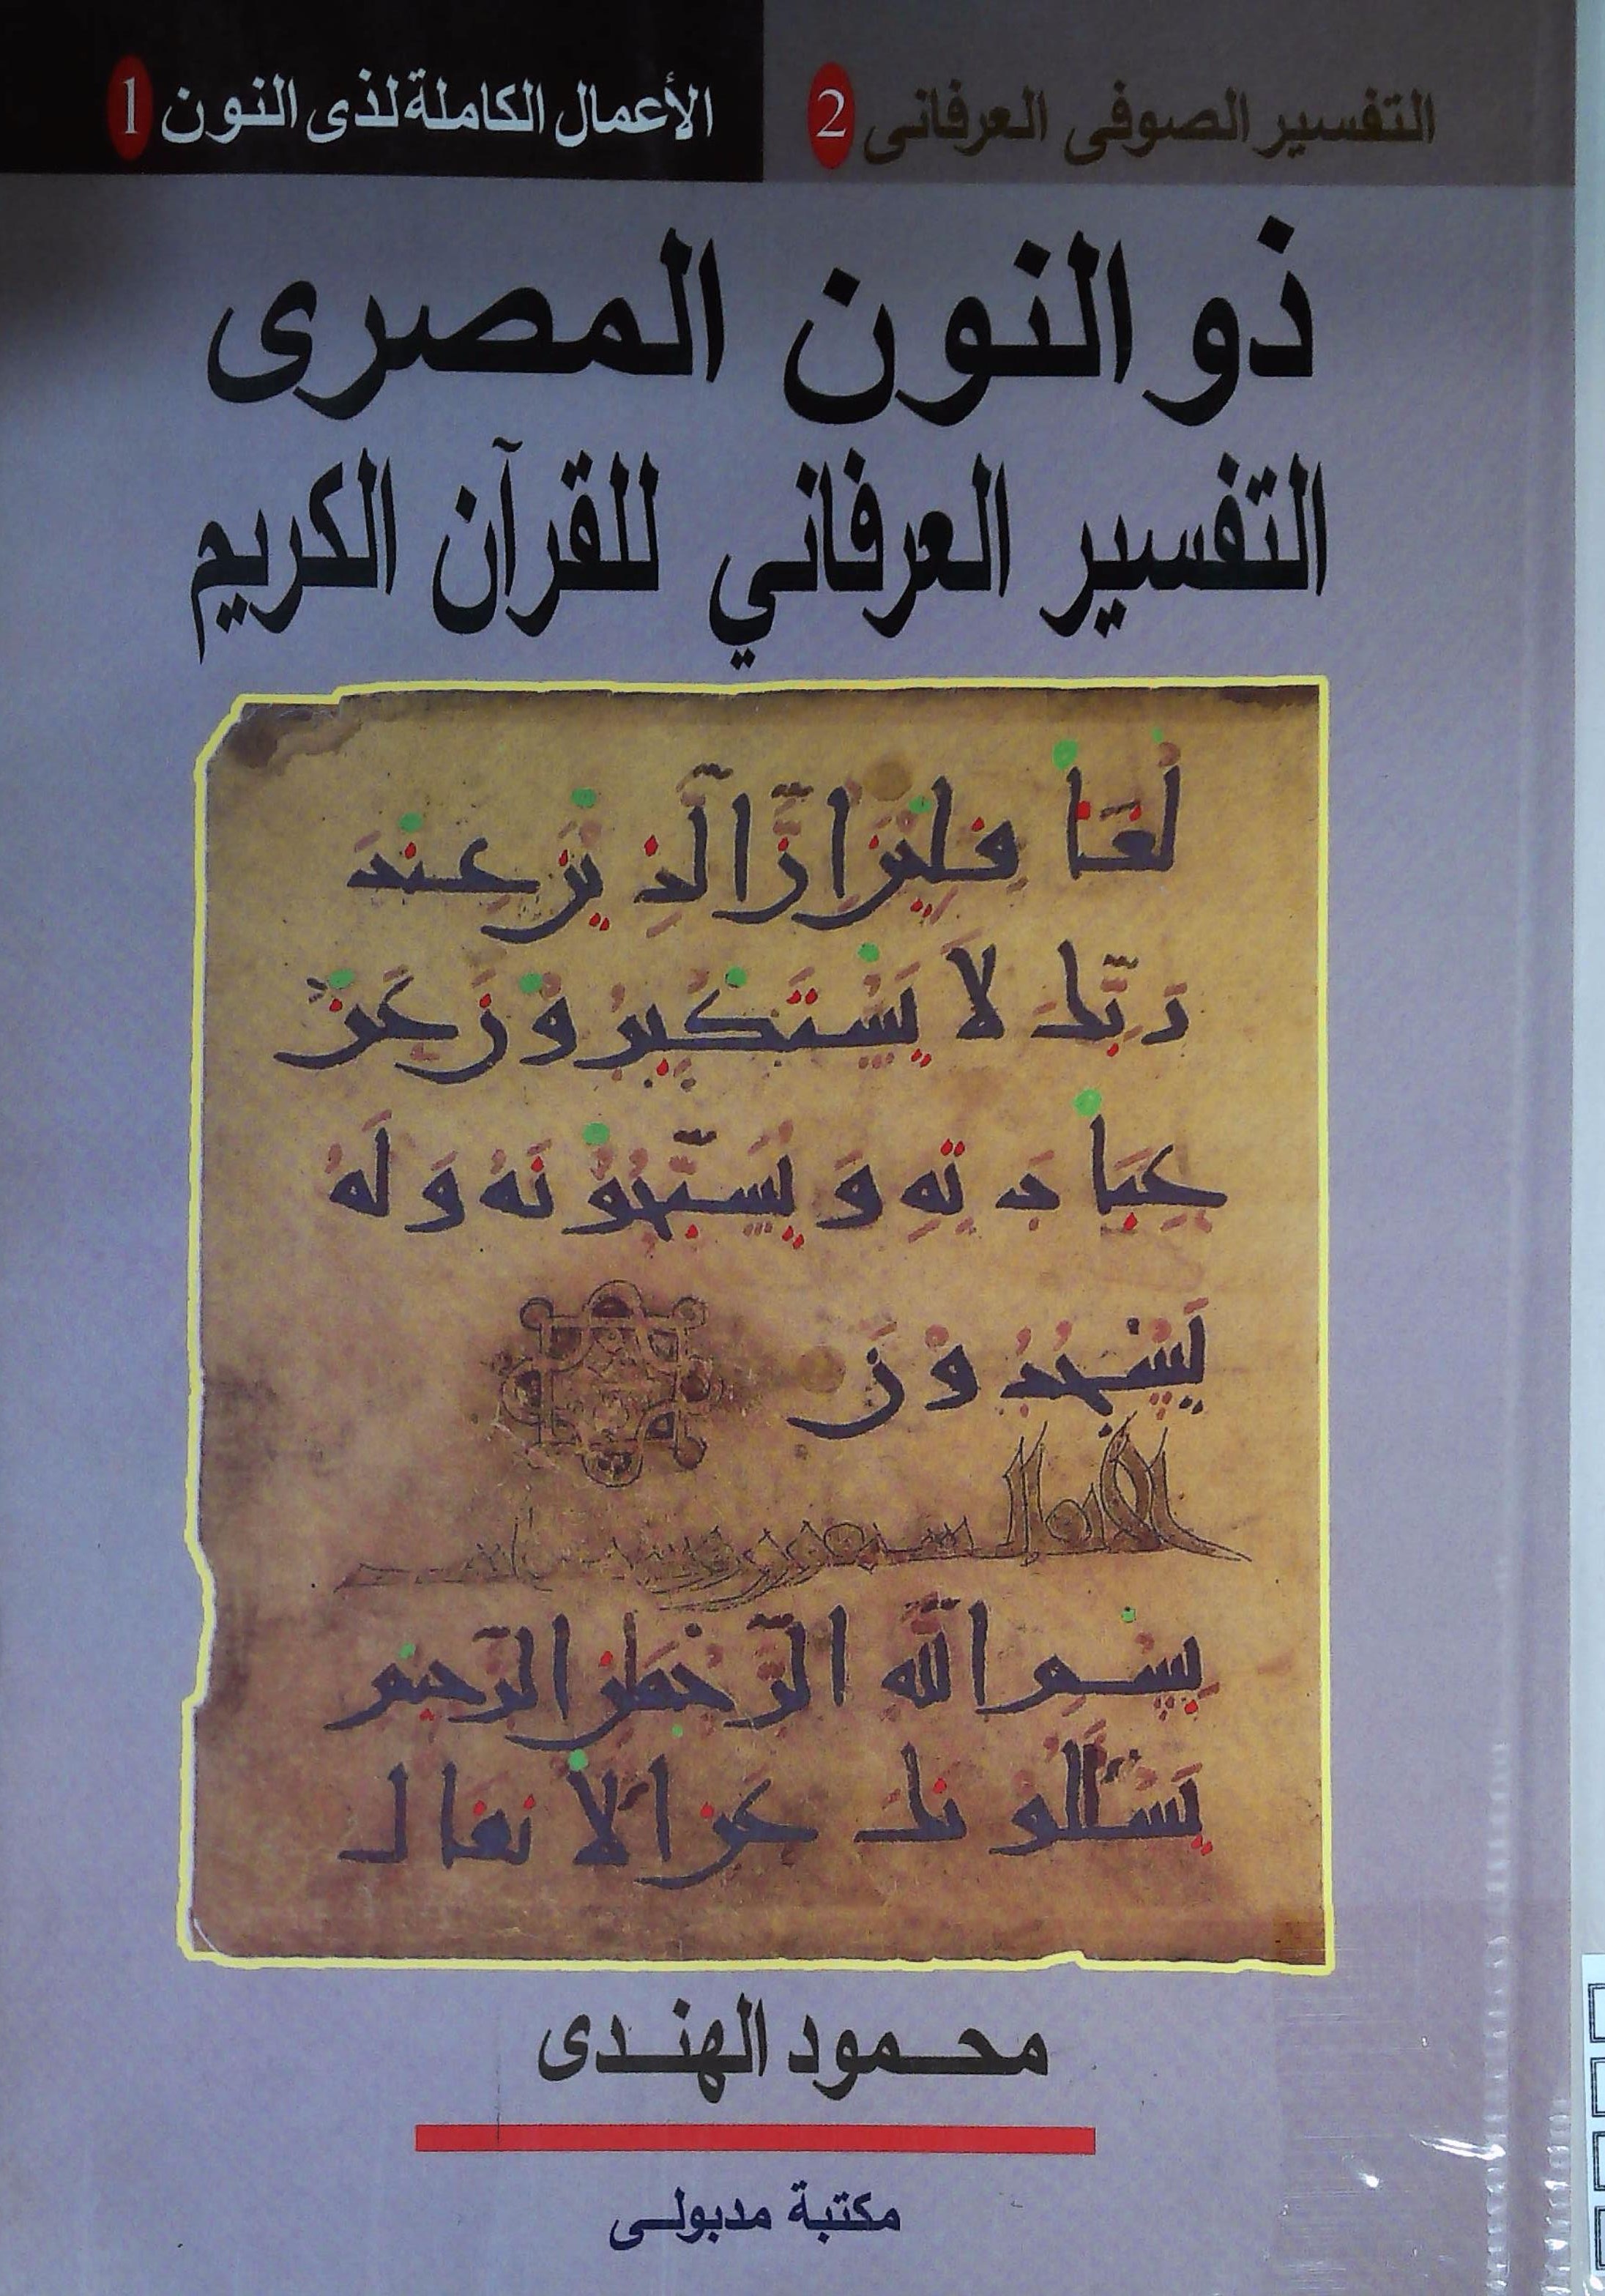 التفسير الصوفى العرفانى 2
الأعمال الكاملة لذى النون 1
ذو النون المصرى
التفسير العرفاني للقرآن الكريم
لغا فلين ان الذين عند
ربك لا يستكبرون عن
عبادته ويسبحونه وله
يسجدون
الانفال سبعون وست
بسم الله الرحمن الرحيم
يسألونك عن الانفال
محمود الهندى
مكتبة مدبولى